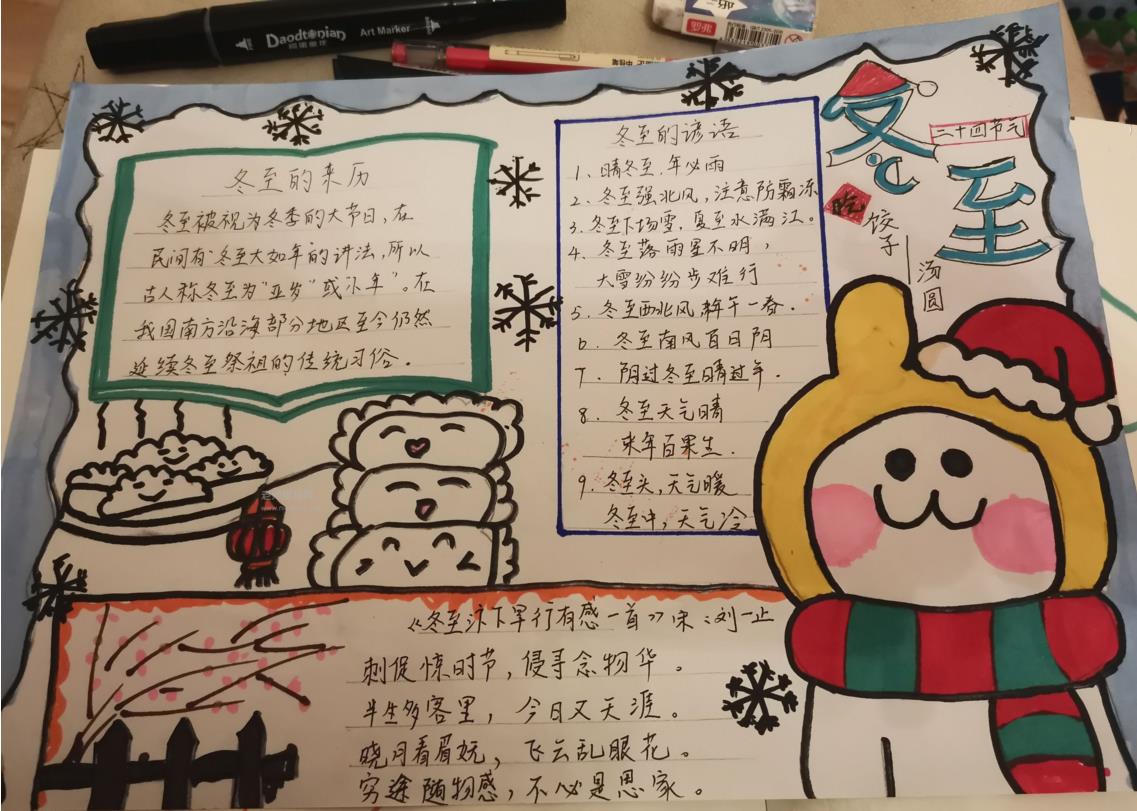 Daodtonian Art Marker
冬至
二十四节气
吃
饺子
汤圆
冬至的来历
冬至被视为冬季的大节日,在
民间有“冬至大如年的讲法,所以
古人称冬至为“亚岁”或“小年”。在
我国南方沿海部分地区至今仍然
延续冬至祭祖的传统习俗.
冬至的谚语
1、晴冬至,年必雨
2、冬至强北风,注意防霜冻
3、冬至下场雪,夏至水满江。
4、冬至落雨星不明,
大雪纷纷步难行
5、冬至西北风,来年干一春.
6、冬至南风百日阴
7.阴过冬至晴过年.
8.冬至天气晴
来年百果生.
9.冬至头,天气暖
冬至中,天气冷
《冬至汴下早行有感一首》宋:刘一止
刺促惊时节,侵寻念物华。
半生多客里,今日又天涯。
晓月看眉妩,飞云乱眼花。
穷途随物感,不必是思家。